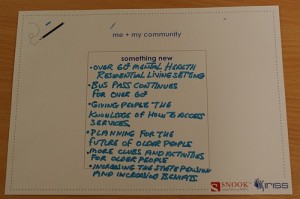 me + my community
something new
• OVER 60 MENTAL HEALTH
RESIDENTIAL LIVING SETTING
• BUS PASS CONTINUES
FOR OVER 60
• GIVING PEOPLE THE
KNOWLEDGE OF HOW TO ACCESS
SERVICES.
• PLANNING FOR THE
FUTURE OF OLDER PEOPLE
• MORE CLUBS AND ACTIVITIES
FOR OLDER PEOPLE
• INCREASING THE STATE PENSION
AND INCREASING BENEFITS
SNOOK
iriss